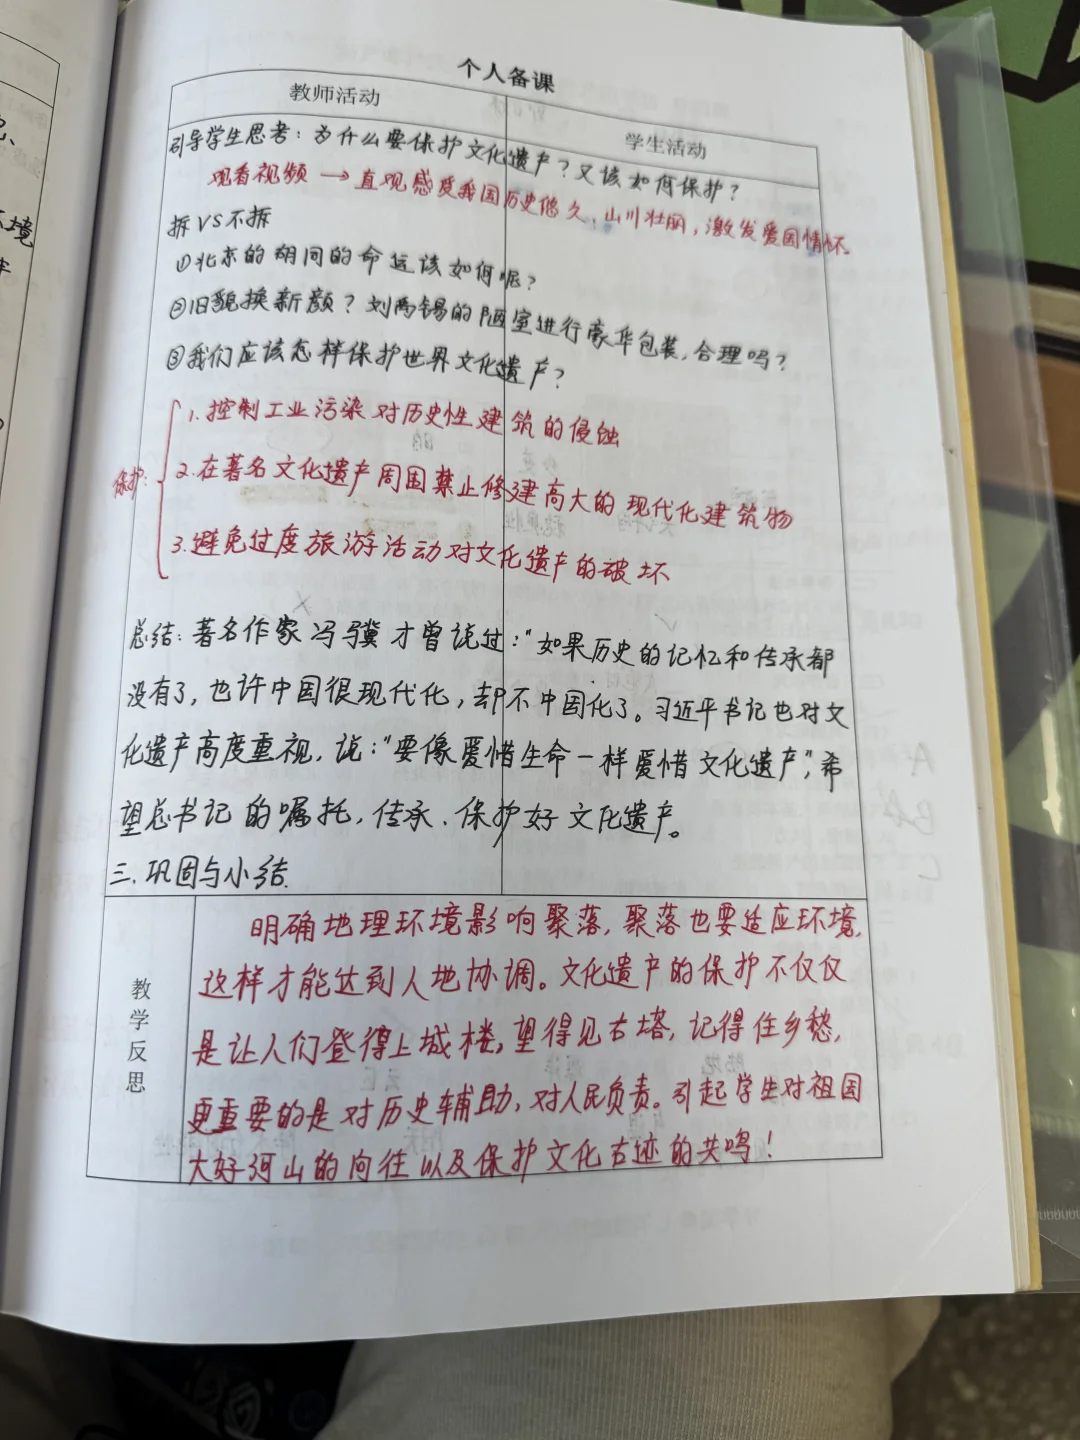 个人备课
教师活动
学生活动
引导学生思考：为什么要保护文化遗产？又该如何保护？
观看视频 → 直观感受我国历史悠久，山川壮丽，激发爱国情怀。
拆VS不拆
①北京的胡同的命运该如何呢？
②旧貌换新颜？刘禹锡的陋室进行豪华包装，合理吗？
③我们应该怎样保护世界文化遗产？
保护：
1.控制工业污染对历史性建筑的侵蚀
2.在著名文化遗产周围禁止修建高大的现代化建筑物
3.避免过度旅游活动对文化遗产的破坏
总结：著名作家冯骥才曾说过："如果历史的记忆和传承都
没有了，也许中国很现代化，却不中国化了。习近平书记也对文
化遗产高度重视，说："要像爱惜生命一样爱惜文化遗产"，希
望总书记的嘱托，传承、保护好文化遗产。
三、巩固与小结
教学反思
明确地理环境影响聚落，聚落也要适应环境，
这样才能达到人地协调。文化遗产的保护不仅仅
是让人们登得上城楼，望得见古塔，记得住乡愁，
更重要的是对历史辅助，对人民负责。引起学生对祖国
大好河山的向往以及保护文化古迹的共鸣！
环境